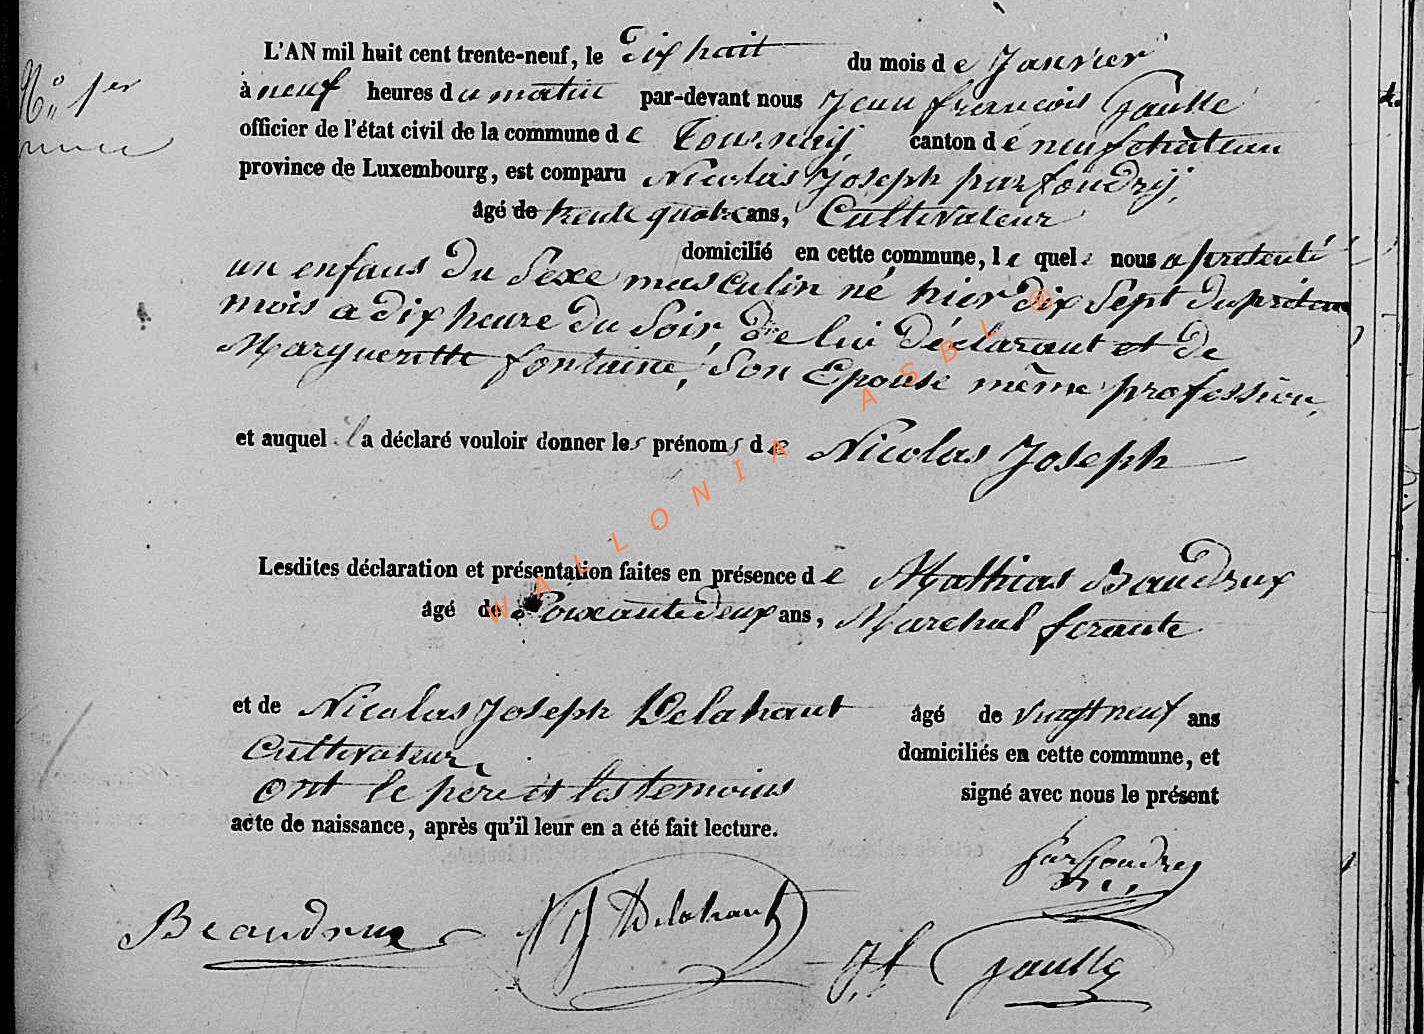 L'AN mil huit cent trente-neuf, le Dix huit du mois d e Janvier
N° 1er
à neuf heures d u matin par-devant nous Jean françois Gaulle
officier de l'état civil de la commune d e Tournay canton d e neufchateau
province de Luxembourg, est comparu Nicolas Joseph parfondry,
âgé de trente quatre ans, Cultivateur
domicilié en cette commune, l e quel nous a présenté
un enfans du Sexe masculin né hier dix Sept du présent
mois a dix heure du Soir, de lui déclarant et de
Margueritte fontaine, Son Epouse même profession,
et auquel il a déclaré vouloir donner les prénoms d e Nicolas Joseph
Lesdites déclaration et présentation faites en présence d e Mathias Baudrux
âgé de Soixante deux ans, Marchal ferante
et de Nicolas Joseph Delahaut âgé de vingt neuf ans
Cultivateur, domiciliés en cette commune, et
ont le père et les temoins signé avec nous le présent
acte de naissance, après qu'il leur en a été fait lecture.
parfondry
Beaudrux NJ Delahaut
Jf Gaulle
WALLONIA ASBL ®